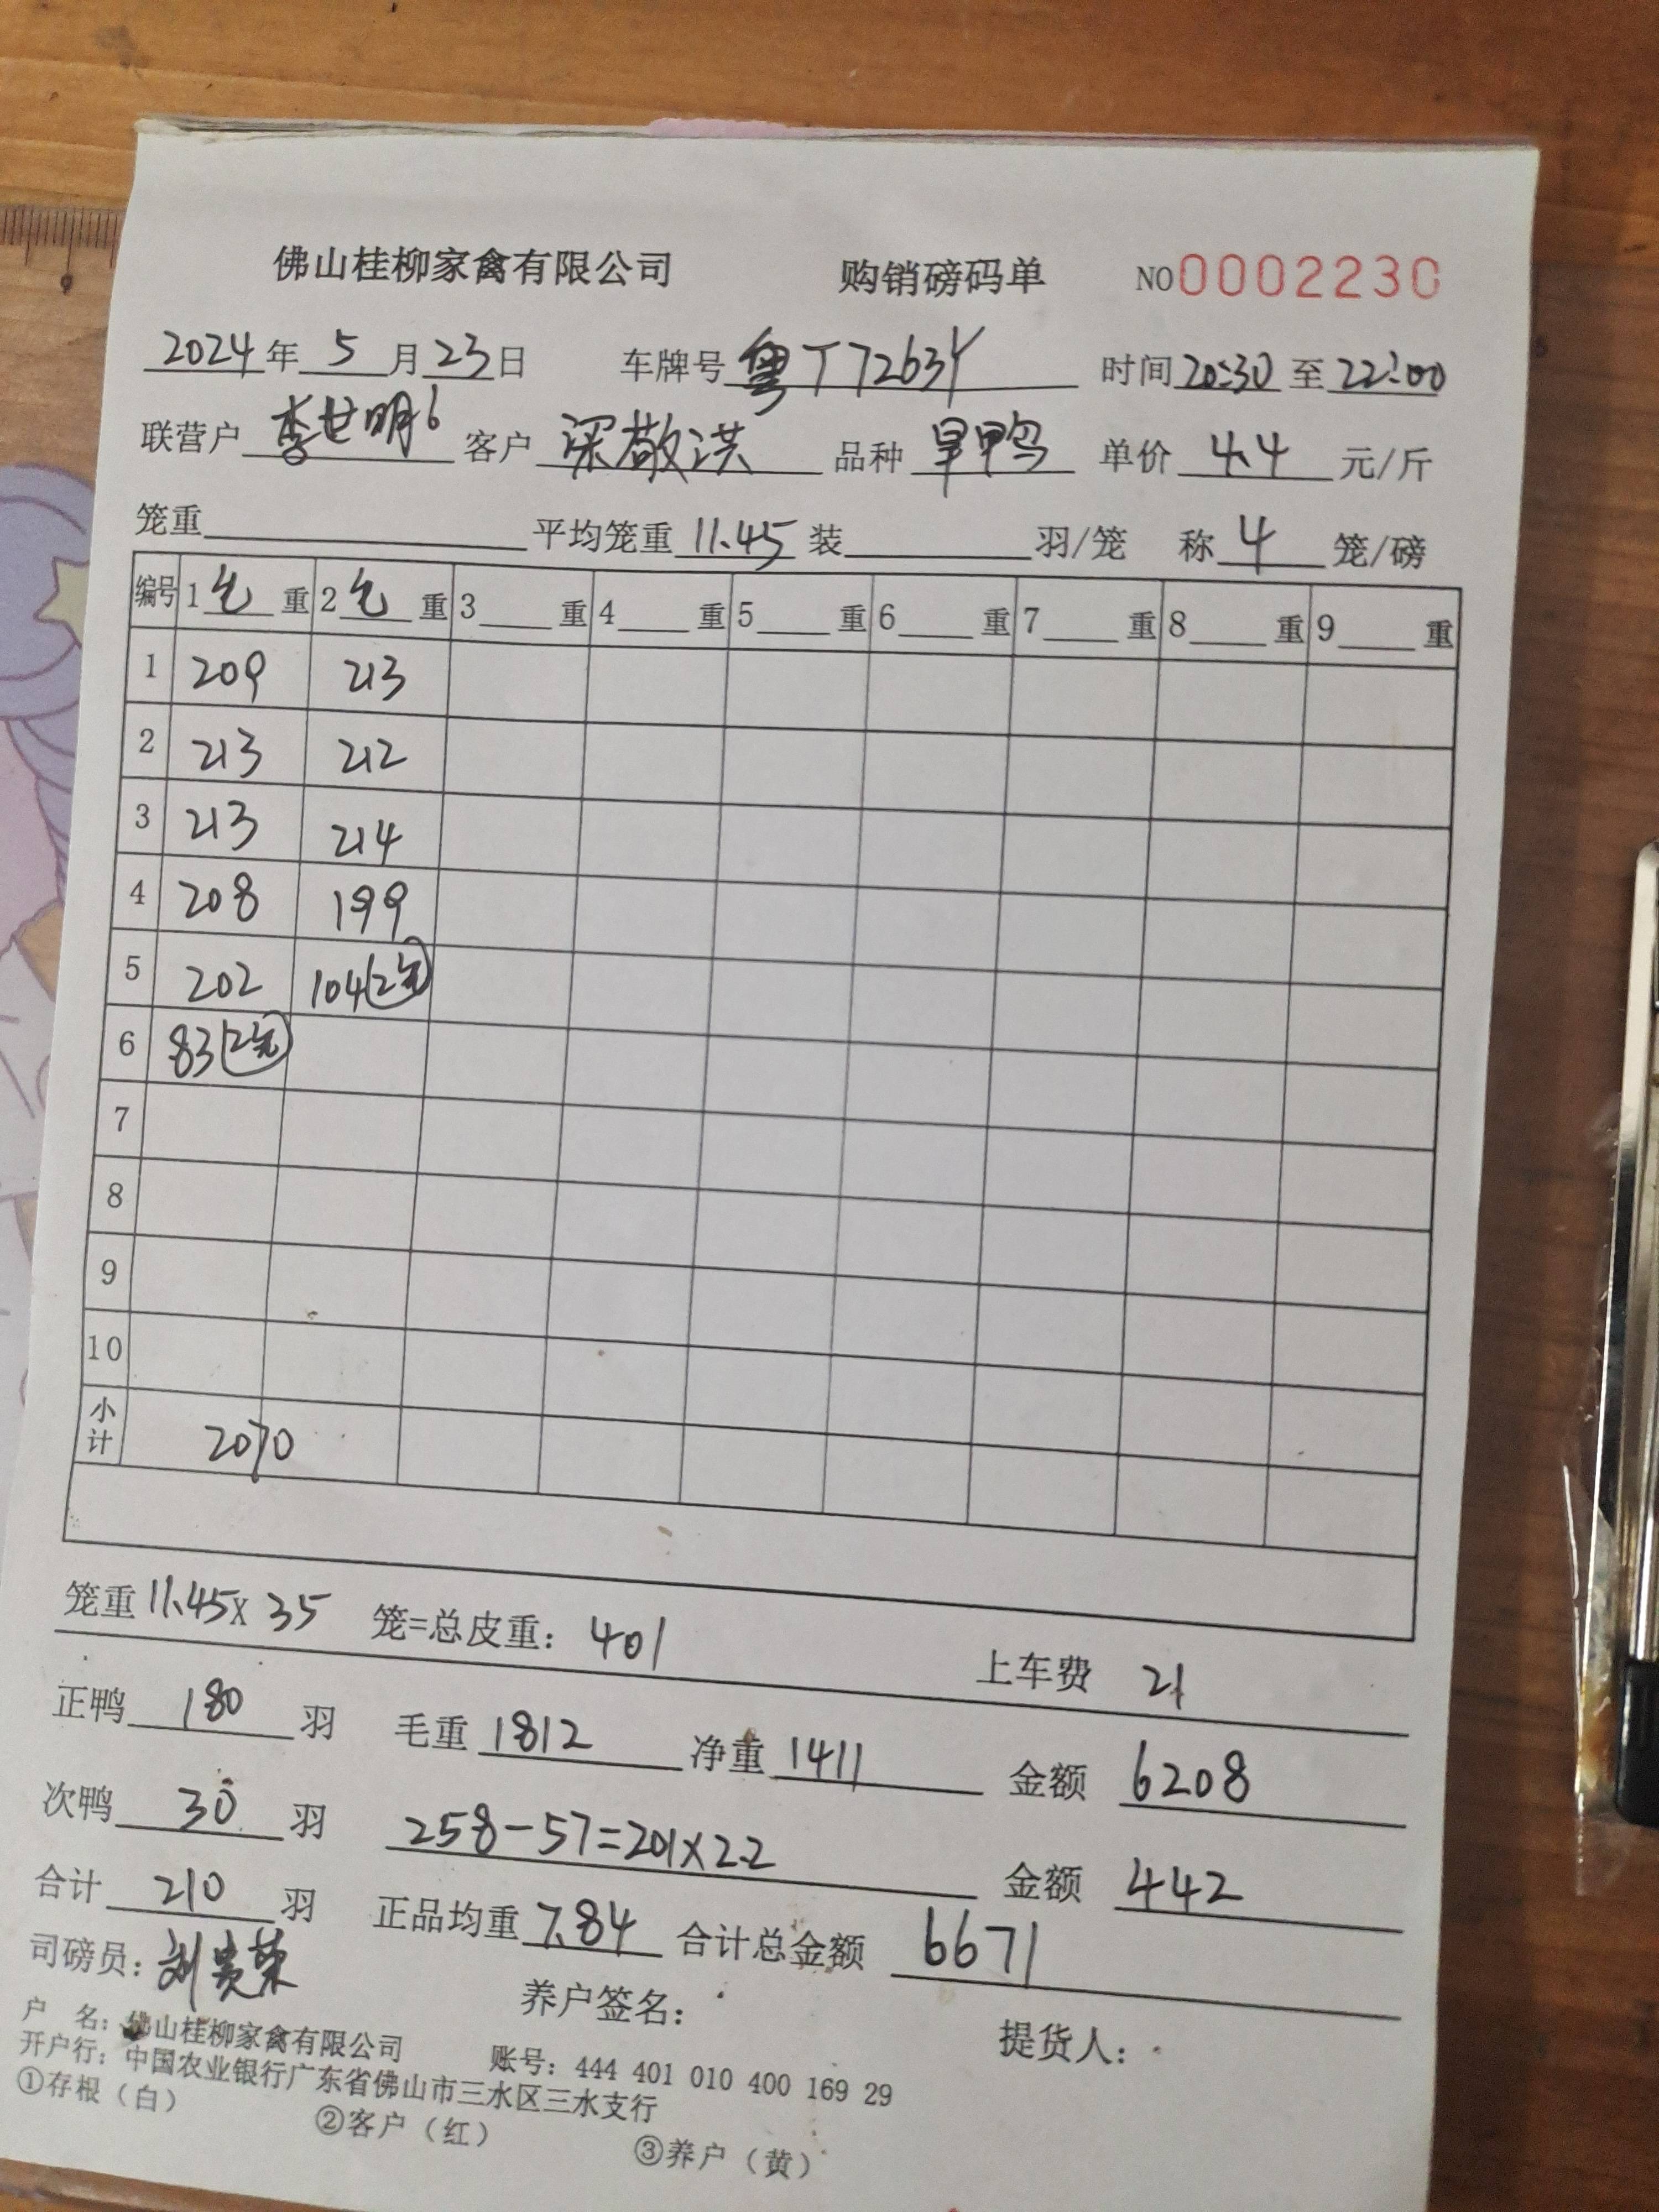 佛山桂柳家禽有限公司 购销磅码单 NO 0002230
2024年 5 月 23 日 车牌号 粤T7263Y 时间 20:30 至 22:00
联营户 李世明6 客户 梁敬洪 品种 旱鸭 单价 4.4 元/斤
笼重 平均笼重 11.45 装 羽/笼 称 4 笼/磅
编号 1 毛 重 2 毛 重 3 重 4 重 5 重 6 重 7 重 8 重 9 重
1 209 213
2 213 212
3 213 214
4 208 199
5 202 104(2笼)
6 83(2笼)
7
8
9
10
小计 2070
笼重 11.45 X 35 笼=总皮重: 401 上车费 21
正鸭 180 羽 毛重 1812 净重 1411 金额 6208
次鸭 30 羽 258-57=201×2.2 金额 442
合计 210 羽 正品均重 7.84 合计总金额 6671
司磅员: 刘贵荣 养户签名: 提货人:
户 名: 佛山桂柳家禽有限公司 账号: 444 401 010 400 169 29
开户行: 中国农业银行广东省佛山市三水区三水支行
①存根（白） ②客户（红） ③养户（黄）